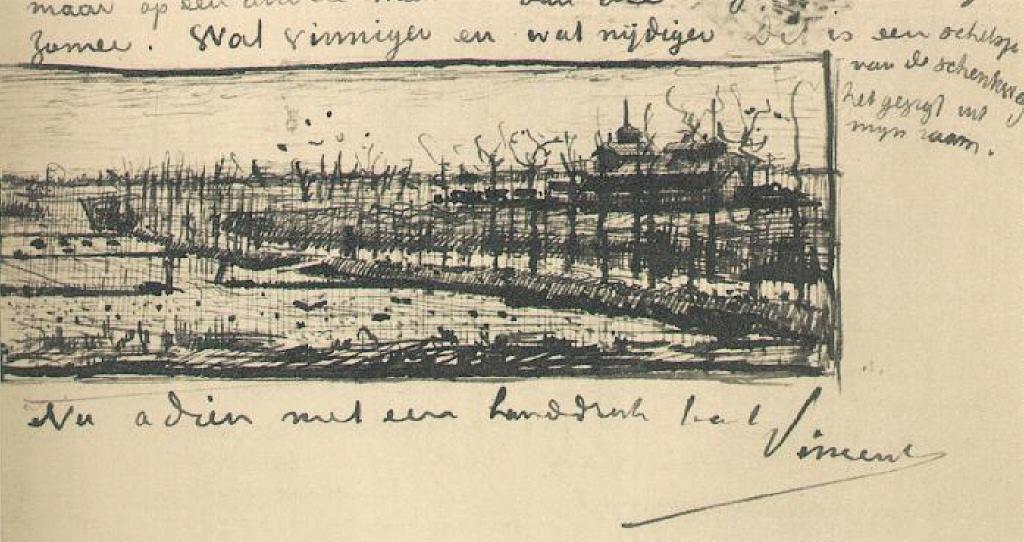 maar op een van die
zomer. Wat vinniger en wat nijdiger Dit is een schetsje
van de schenkweg
het gezigt uit
mijn raam.
Nu adieu met een handdruk t à t
Vincent